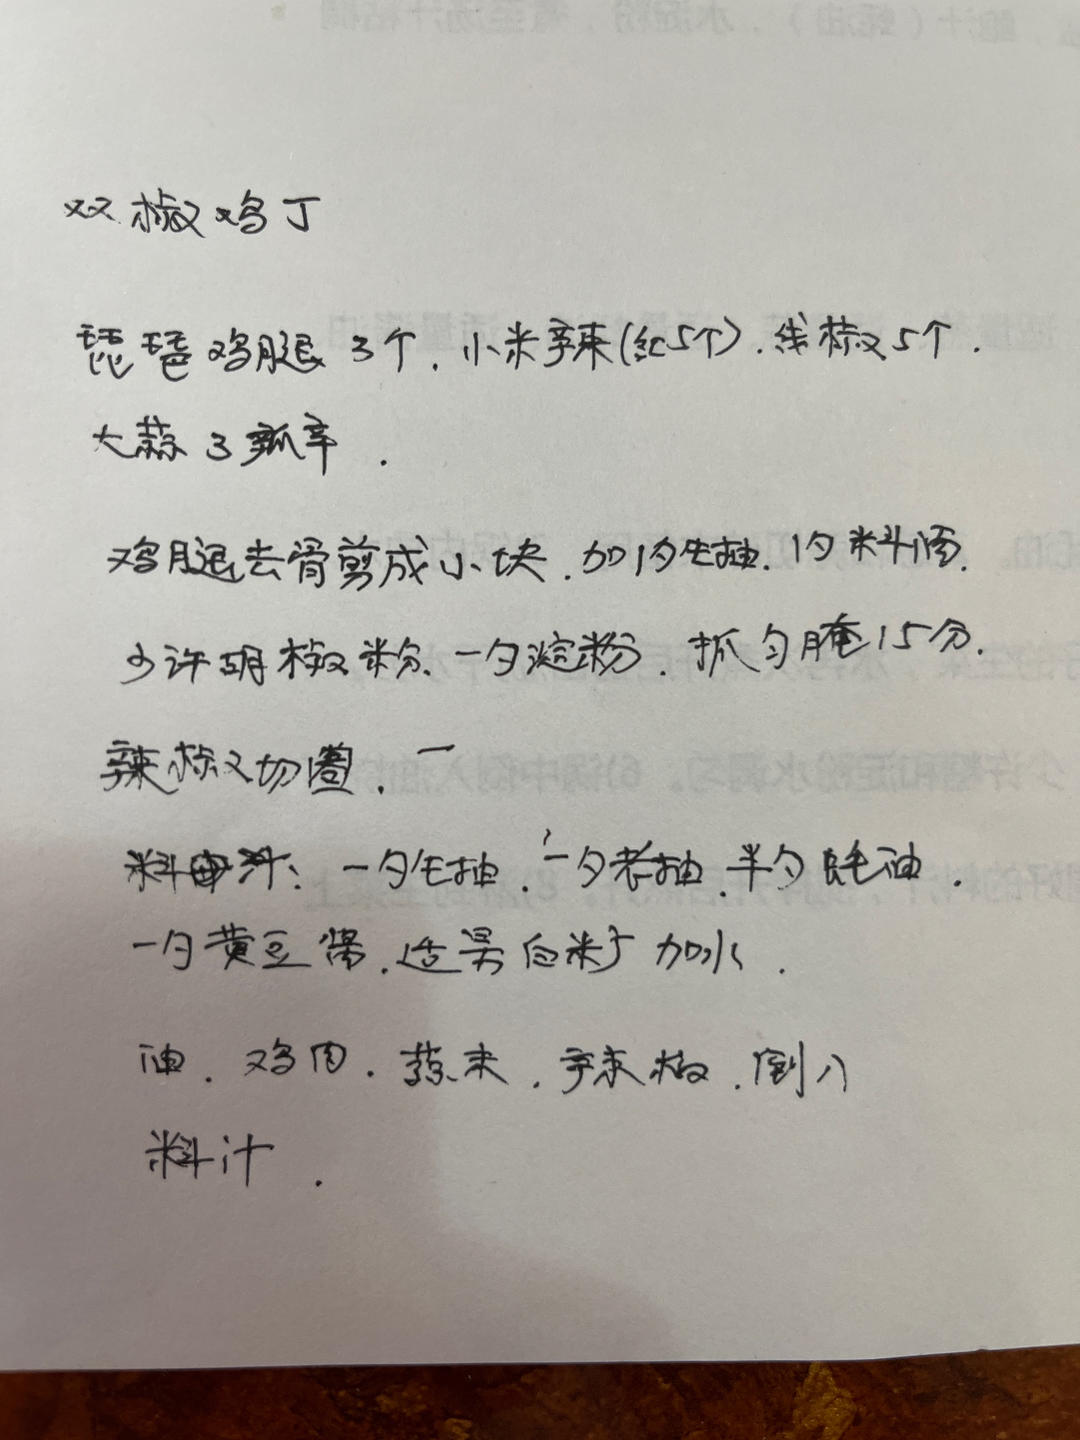 双椒鸡丁
琵琶鸡腿3个.小米辣(红5个).线椒5个.
大蒜3瓣.
鸡腿去骨剪成小块.加1勺生抽.1勺料酒.
少许胡椒粉.一勺淀粉.抓匀腌15分.
辣椒切圈.
料汁:一勺生抽.一勺老抽.半勺耗油.
一勺黄豆酱.适量白 加水.
油.鸡肉.蒜末.辣椒.倒入
料汁.